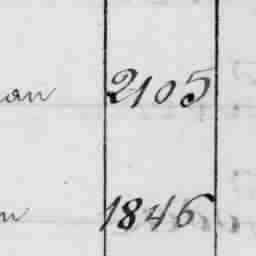 an 2105
n 1846